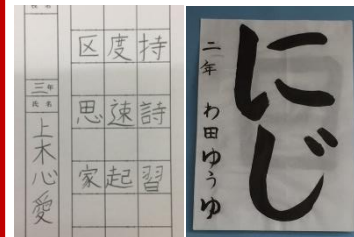 持詩習
度速起
区思家
三年
氏名
上木心愛
にじ
二年 わ田ゆうゆ